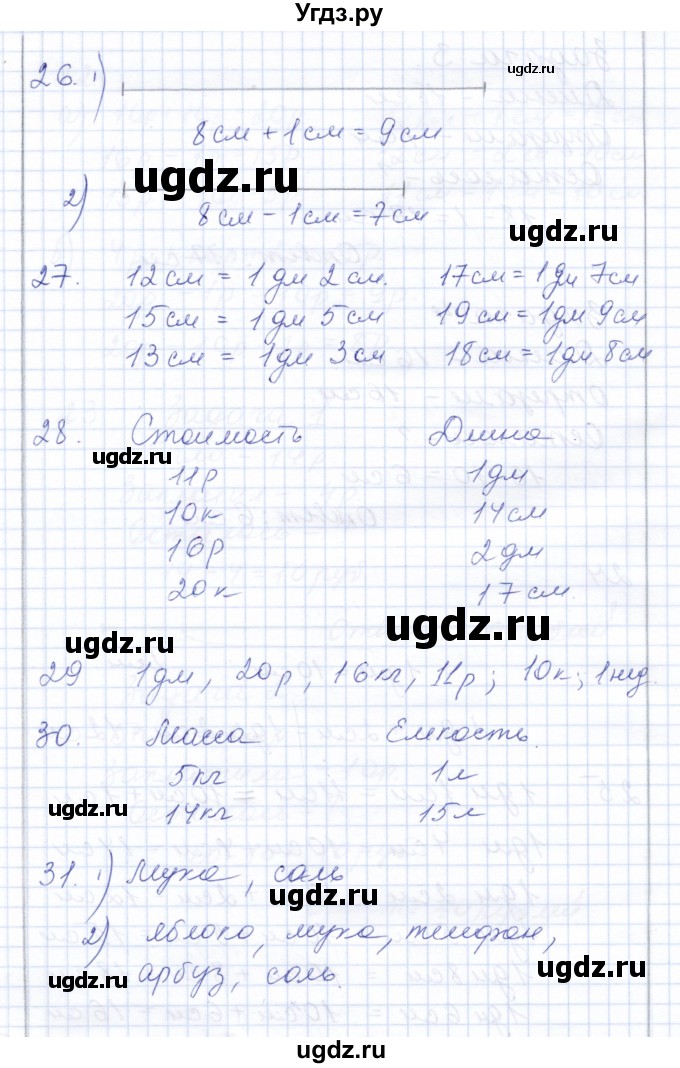 Угдз.ру
26. 1)
ugdz.ru
8см + 1см = 9см
ugdz.ru
2)
8см - 1см = 7см
ugdz.ru
27. 12см = 1дм 2см. 17см = 1дм 7см
15см = 1дм 5см 19см = 1дм 9см
13см = 1дм 3см 18см = 1дм 8см
28. Стоимость Длина.
ugdz.ru
11р 1дм
10к 14см
16р 2дм
20к 17см.
ugdz.ru
ugdz.ru
29 1дм, 20р, 16кг, 11р; 10к; 1нед.
30. Масса Емкость.
5кг 1л
ugdz.ru
14кг 15л
31. 1) Муха, соль
ugdz.ru
2) яблоко, муха, телефон,
ugdz.ru
арбуз, соль.
ugdz.ru
ugdz.ru